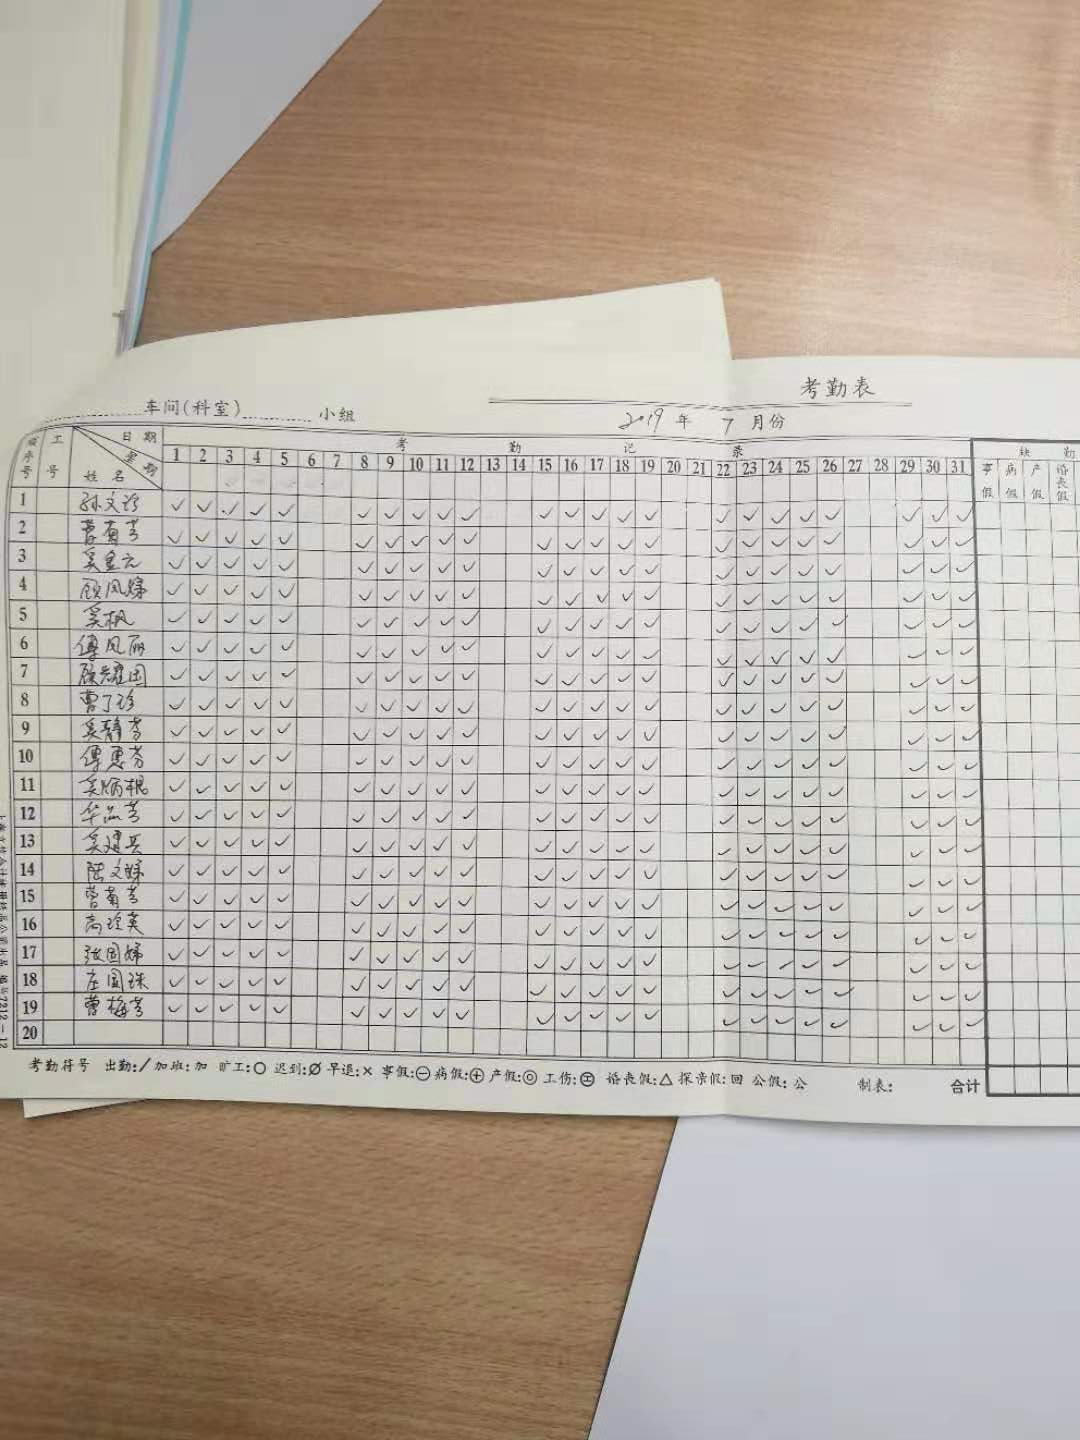 考勤表
车间(科室) 小组 2019 年 7 月份
顺序号 工号 日期 星期 姓名 考勤记录 缺勤
1 2 3 4 5 6 7 8 9 10 11 12 13 14 15 16 17 18 19 20 21 22 23 24 25 26 27 28 29 30 31 事假 病假 产假 婚丧假
1 孙文珍 ✓ ✓ ✓ ✓ ✓ ✓ ✓ ✓ ✓ ✓ ✓ ✓ ✓ ✓ ✓ ✓ ✓ ✓ ✓ ✓ ✓ ✓ ✓
2 曹菊芳 ✓ ✓ ✓ ✓ ✓ ✓ ✓ ✓ ✓ ✓ ✓ ✓ ✓ ✓ ✓ ✓ ✓ ✓ ✓ ✓ ✓ ✓ ✓
3 吴 元 ✓ ✓ ✓ ✓ ✓ ✓ ✓ ✓ ✓ ✓ ✓ ✓ ✓ ✓ ✓ ✓ ✓ ✓ ✓ ✓ ✓ ✓ ✓
4 顾凤娣 ✓ ✓ ✓ ✓ ✓ ✓ ✓ ✓ ✓ ✓ ✓ ✓ ✓ ✓ ✓ ✓ ✓ ✓ ✓ ✓ ✓ ✓ ✓
5 吴枫 ✓ ✓ ✓ ✓ ✓ ✓ ✓ ✓ ✓ ✓ ✓ ✓ ✓ ✓ ✓ ✓ ✓ ✓ ✓ ✓ ✓ ✓ ✓
6 傅凤丽 ✓ ✓ ✓ ✓ ✓ ✓ ✓ ✓ ✓ ✓ ✓ ✓ ✓ ✓ ✓ ✓ ✓ ✓ ✓ ✓ ✓ ✓ ✓
7 顾耀国 ✓ ✓ ✓ ✓ ✓ ✓ ✓ ✓ ✓ ✓ ✓ ✓ ✓ ✓ ✓ ✓ ✓ ✓ ✓ ✓ ✓ ✓ ✓
8 曹了珍 ✓ ✓ ✓ ✓ ✓ ✓ ✓ ✓ ✓ ✓ ✓ ✓ ✓ ✓ ✓ ✓ ✓ ✓ ✓ ✓ ✓ ✓ ✓
9 吴静芳 ✓ ✓ ✓ ✓ ✓ ✓ ✓ ✓ ✓ ✓ ✓ ✓ ✓ ✓ ✓ ✓ ✓ ✓ ✓ ✓ ✓ ✓ ✓
10 傅惠芳 ✓ ✓ ✓ ✓ ✓ ✓ ✓ ✓ ✓ ✓ ✓ ✓ ✓ ✓ ✓ ✓ ✓ ✓ ✓ ✓ ✓ ✓ ✓
11 吴炳根 ✓ ✓ ✓ ✓ ✓ ✓ ✓ ✓ ✓ ✓ ✓ ✓ ✓ ✓ ✓ ✓ ✓ ✓ ✓ ✓ ✓ ✓ ✓
12 华品芳 ✓ ✓ ✓ ✓ ✓ ✓ ✓ ✓ ✓ ✓ ✓ ✓ ✓ ✓ ✓ ✓ ✓ ✓ ✓ ✓ ✓ ✓ ✓
13 吴建兵 ✓ ✓ ✓ ✓ ✓ ✓ ✓ ✓ ✓ ✓ ✓ ✓ ✓ ✓ ✓ ✓ ✓ ✓ ✓ ✓ ✓ ✓ ✓
14 陆文娣 ✓ ✓ ✓ ✓ ✓ ✓ ✓ ✓ ✓ ✓ ✓ ✓ ✓ ✓ ✓ ✓ ✓ ✓ ✓ ✓ ✓ ✓ ✓
15 曹菊芳 ✓ ✓ ✓ ✓ ✓ ✓ ✓ ✓ ✓ ✓ ✓ ✓ ✓ ✓ ✓ ✓ ✓ ✓ ✓ ✓ ✓ ✓ ✓
16 高玲英 ✓ ✓ ✓ ✓ ✓ ✓ ✓ ✓ ✓ ✓ ✓ ✓ ✓ ✓ ✓ ✓ ✓ ✓ ✓ ✓ ✓ ✓ ✓
17 张国娣 ✓ ✓ ✓ ✓ ✓ ✓ ✓ ✓ ✓ ✓ ✓ ✓ ✓ ✓ ✓ ✓ ✓ ✓ ✓ ✓ ✓ ✓ ✓
18 庄国珠 ✓ ✓ ✓ ✓ ✓ ✓ ✓ ✓ ✓ ✓ ✓ ✓ ✓ ✓ ✓ ✓ ✓ ✓ ✓ ✓ ✓ ✓ ✓
19 曹梅芳 ✓ ✓ ✓ ✓ ✓ ✓ ✓ ✓ ✓ ✓ ✓ ✓ ✓ ✓ ✓ ✓ ✓ ✓ ✓ ✓ ✓ ✓ ✓
20
考勤符号 出勤:/ 加班:加 旷工:○ 迟到:Ø 早退:× 事假:⊖ 病假:⊕ 产假:◎ 工伤:㊣ 婚丧假:△ 探亲假:回 公假:公 制表: 合计